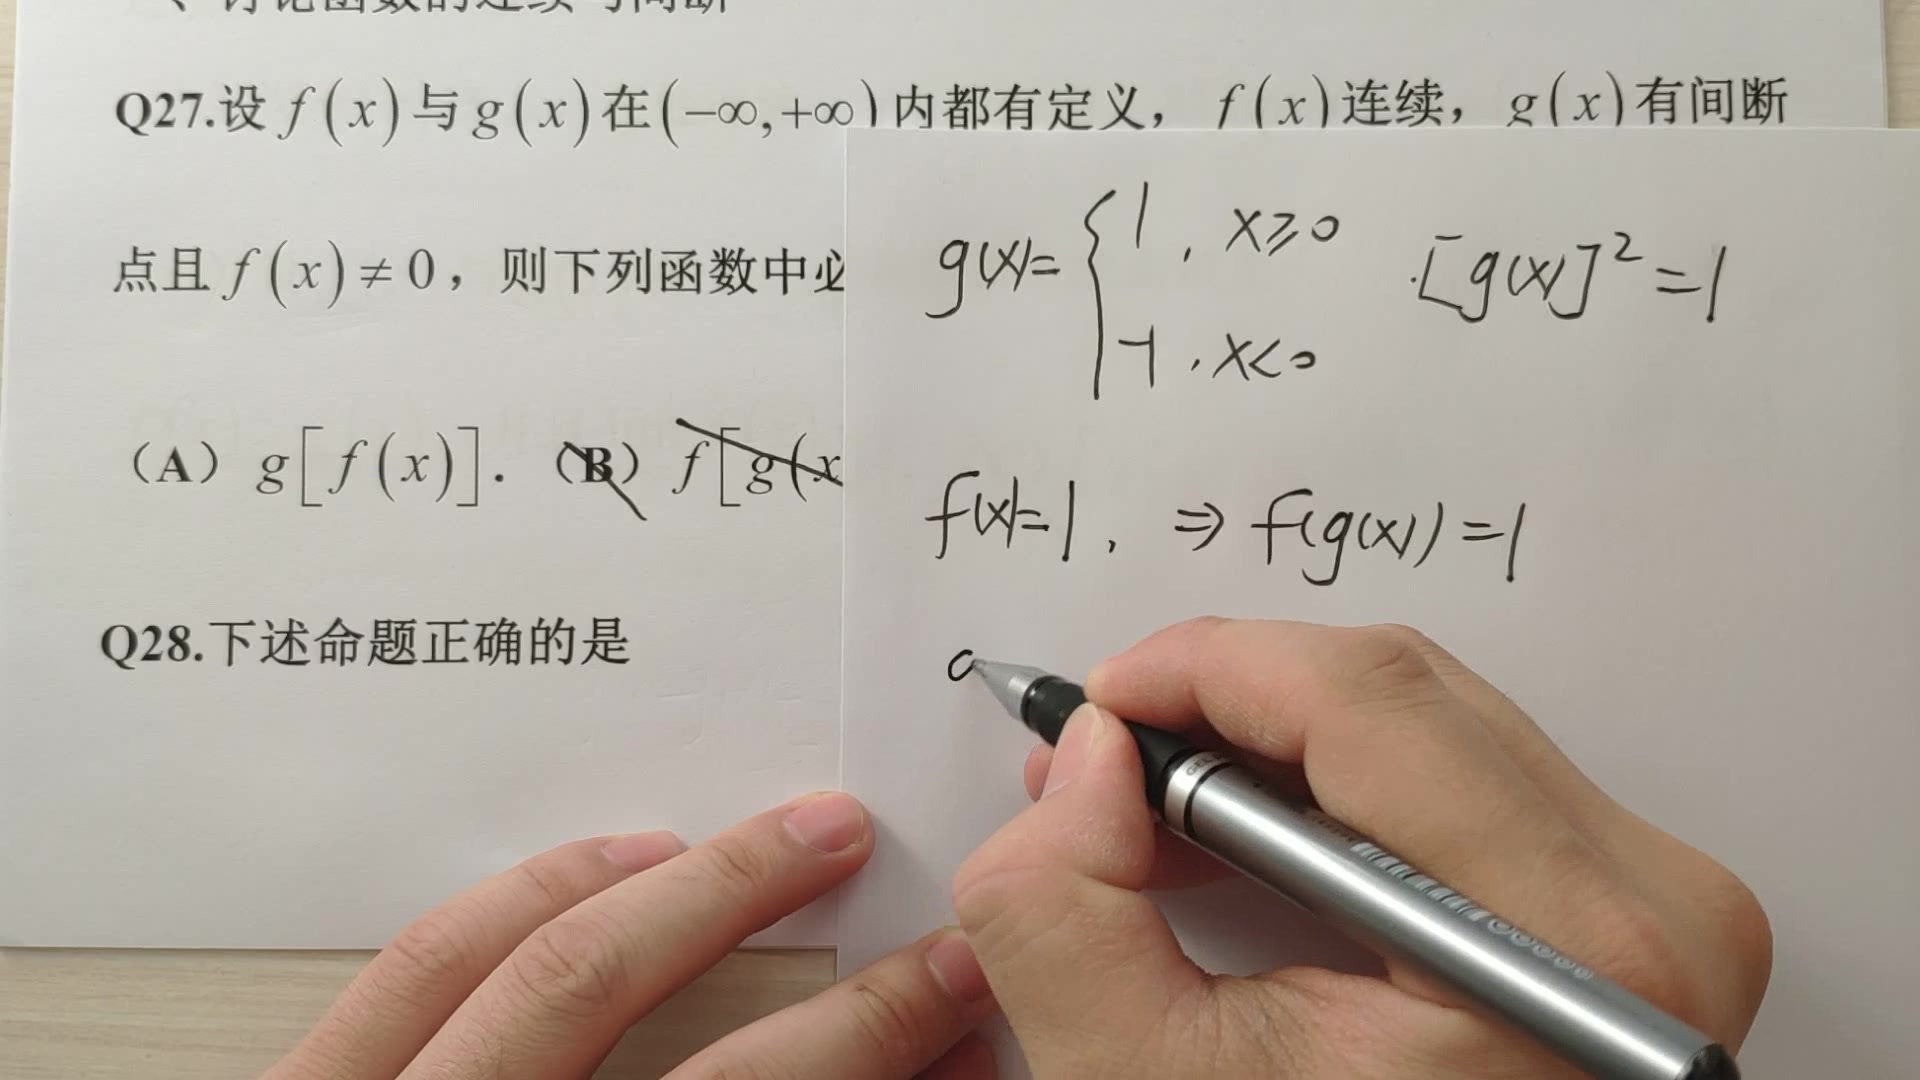 、讨论函数的连续与间断
Q27.设 f(x) 与 g(x) 在 (−∞,+∞) 内都有定义， f(x) 连续， g(x) 有间断
点且 f(x) ≠ 0，则下列函数中必
（A） g[f(x)]. （B） f[g(x
Q28.下述命题正确的是
g(x)= { 1 , x≥0
-1 , x<0
[g(x)]²=1
f(x)=1, ⇒ f(g(x))=1